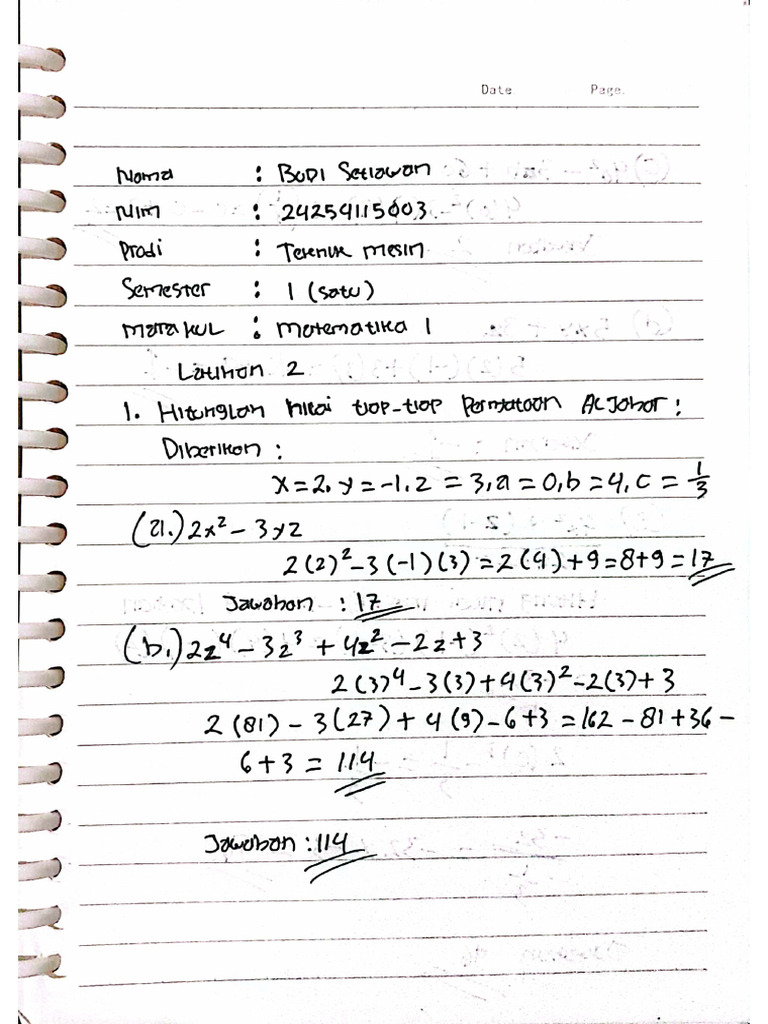 Date Page.
Nama : BUDI Setiawan
NIM : 24254115003
Prodi : Teknik mesin
Semester : 1 (satu)
Matakul : Matematika 1
Latihan 2
1. Hitunglah nilai tiap-tiap Pernyataan Aljabar :
Diberikan :
x = 2, y = -1, z = 3, a = 0, b = 4, c = 1/3
(a.) 2x² - 3yz
2(2)² - 3(-1)(3) = 2(4) + 9 = 8 + 9 = 17
Jawaban : 17
(b.) 2z⁴ - 3z³ + 4z² - 2z + 3
2(3)⁴ - 3(3) + 4(3)² - 2(3) + 3
2(81) - 3(27) + 4(9) - 6 + 3 = 162 - 81 + 36 -
6 + 3 = 114
Jawaban : 114